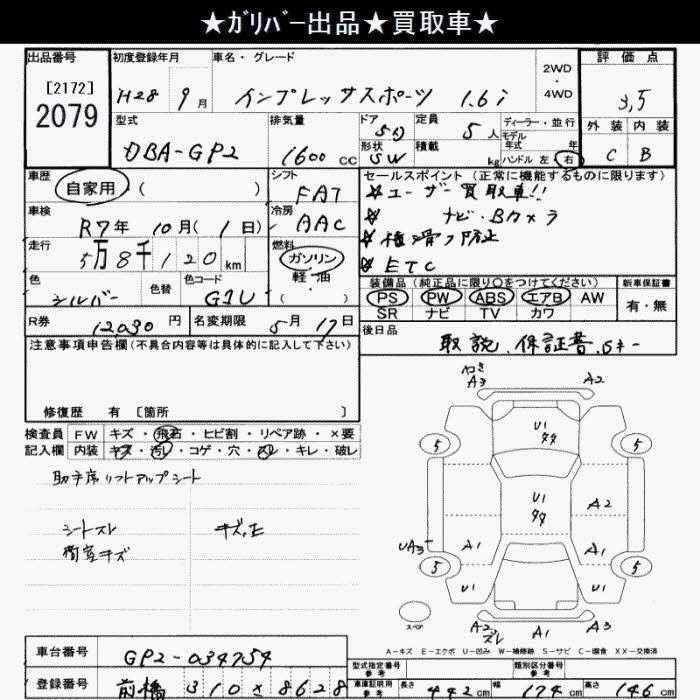 ★ｶﾞﾘﾊﾞｰ出品★買取車★
出品番号 初度登録年月 車名・グレード 2WD・4WD 評価点
[2172]
2079
H28年 9月 インプレッサスポーツ 1.6i 3,5
型式 排気量 ドア 定員 ディーラー・並行 外装 内装
DBA-GP2 1600cc 5D 5人 モデル年式 年
形状 SW 積載 kg ハンドル 左 右 C B
車歴 自家用 ( ) シフト FAT セールスポイント (正常に機能するものに限ります)
☆ユーザー買取車!!
車検 R7年 10月( 1日) 冷房 AAC ☆ ナビ・Bカメラ
☆横滑り防止
走行 5万8千120km 燃料 ガソリン 軽・油 ( ) ☆ETC
色 シルバー 色替 色コード G1U 装備品 (純正品に限り○をつけてください) 新車保証書
PS PW ABS エアB AW 有・無
SR ナビ TV カワ
R券 12,030円 名変期限 5月17日 後日品
取説、保証書、Sキー
注意事項申告欄(不具合内容等は具体的に記入して下さい)
修復歴 有 [箇所 ]
検査員 FW キズ・飛石・ヒビ割・リペア跡・×要
記入欄 内装 キズ・汚レ・コゲ・穴・スレ・キレ・破レ
助手席リフトアップシート
シートスレ キズ,E
荷室キズ
A3 A2
U1
5 5
U1
A2
UA3 A1 A1
5 5
U1 U1
スペア A2 スレ A1 A3
A-キズ E-エクボ U-凹み W-補修跡 S-サビ C-腐食 XX-交換済
車台番号 GP2-034754 型式指定番号 参考 類別区分番号 参考
登録番号 前橋 310 さ 8628 車庫証明用 参考 長さ 442cm 幅 174cm 高さ 146cm